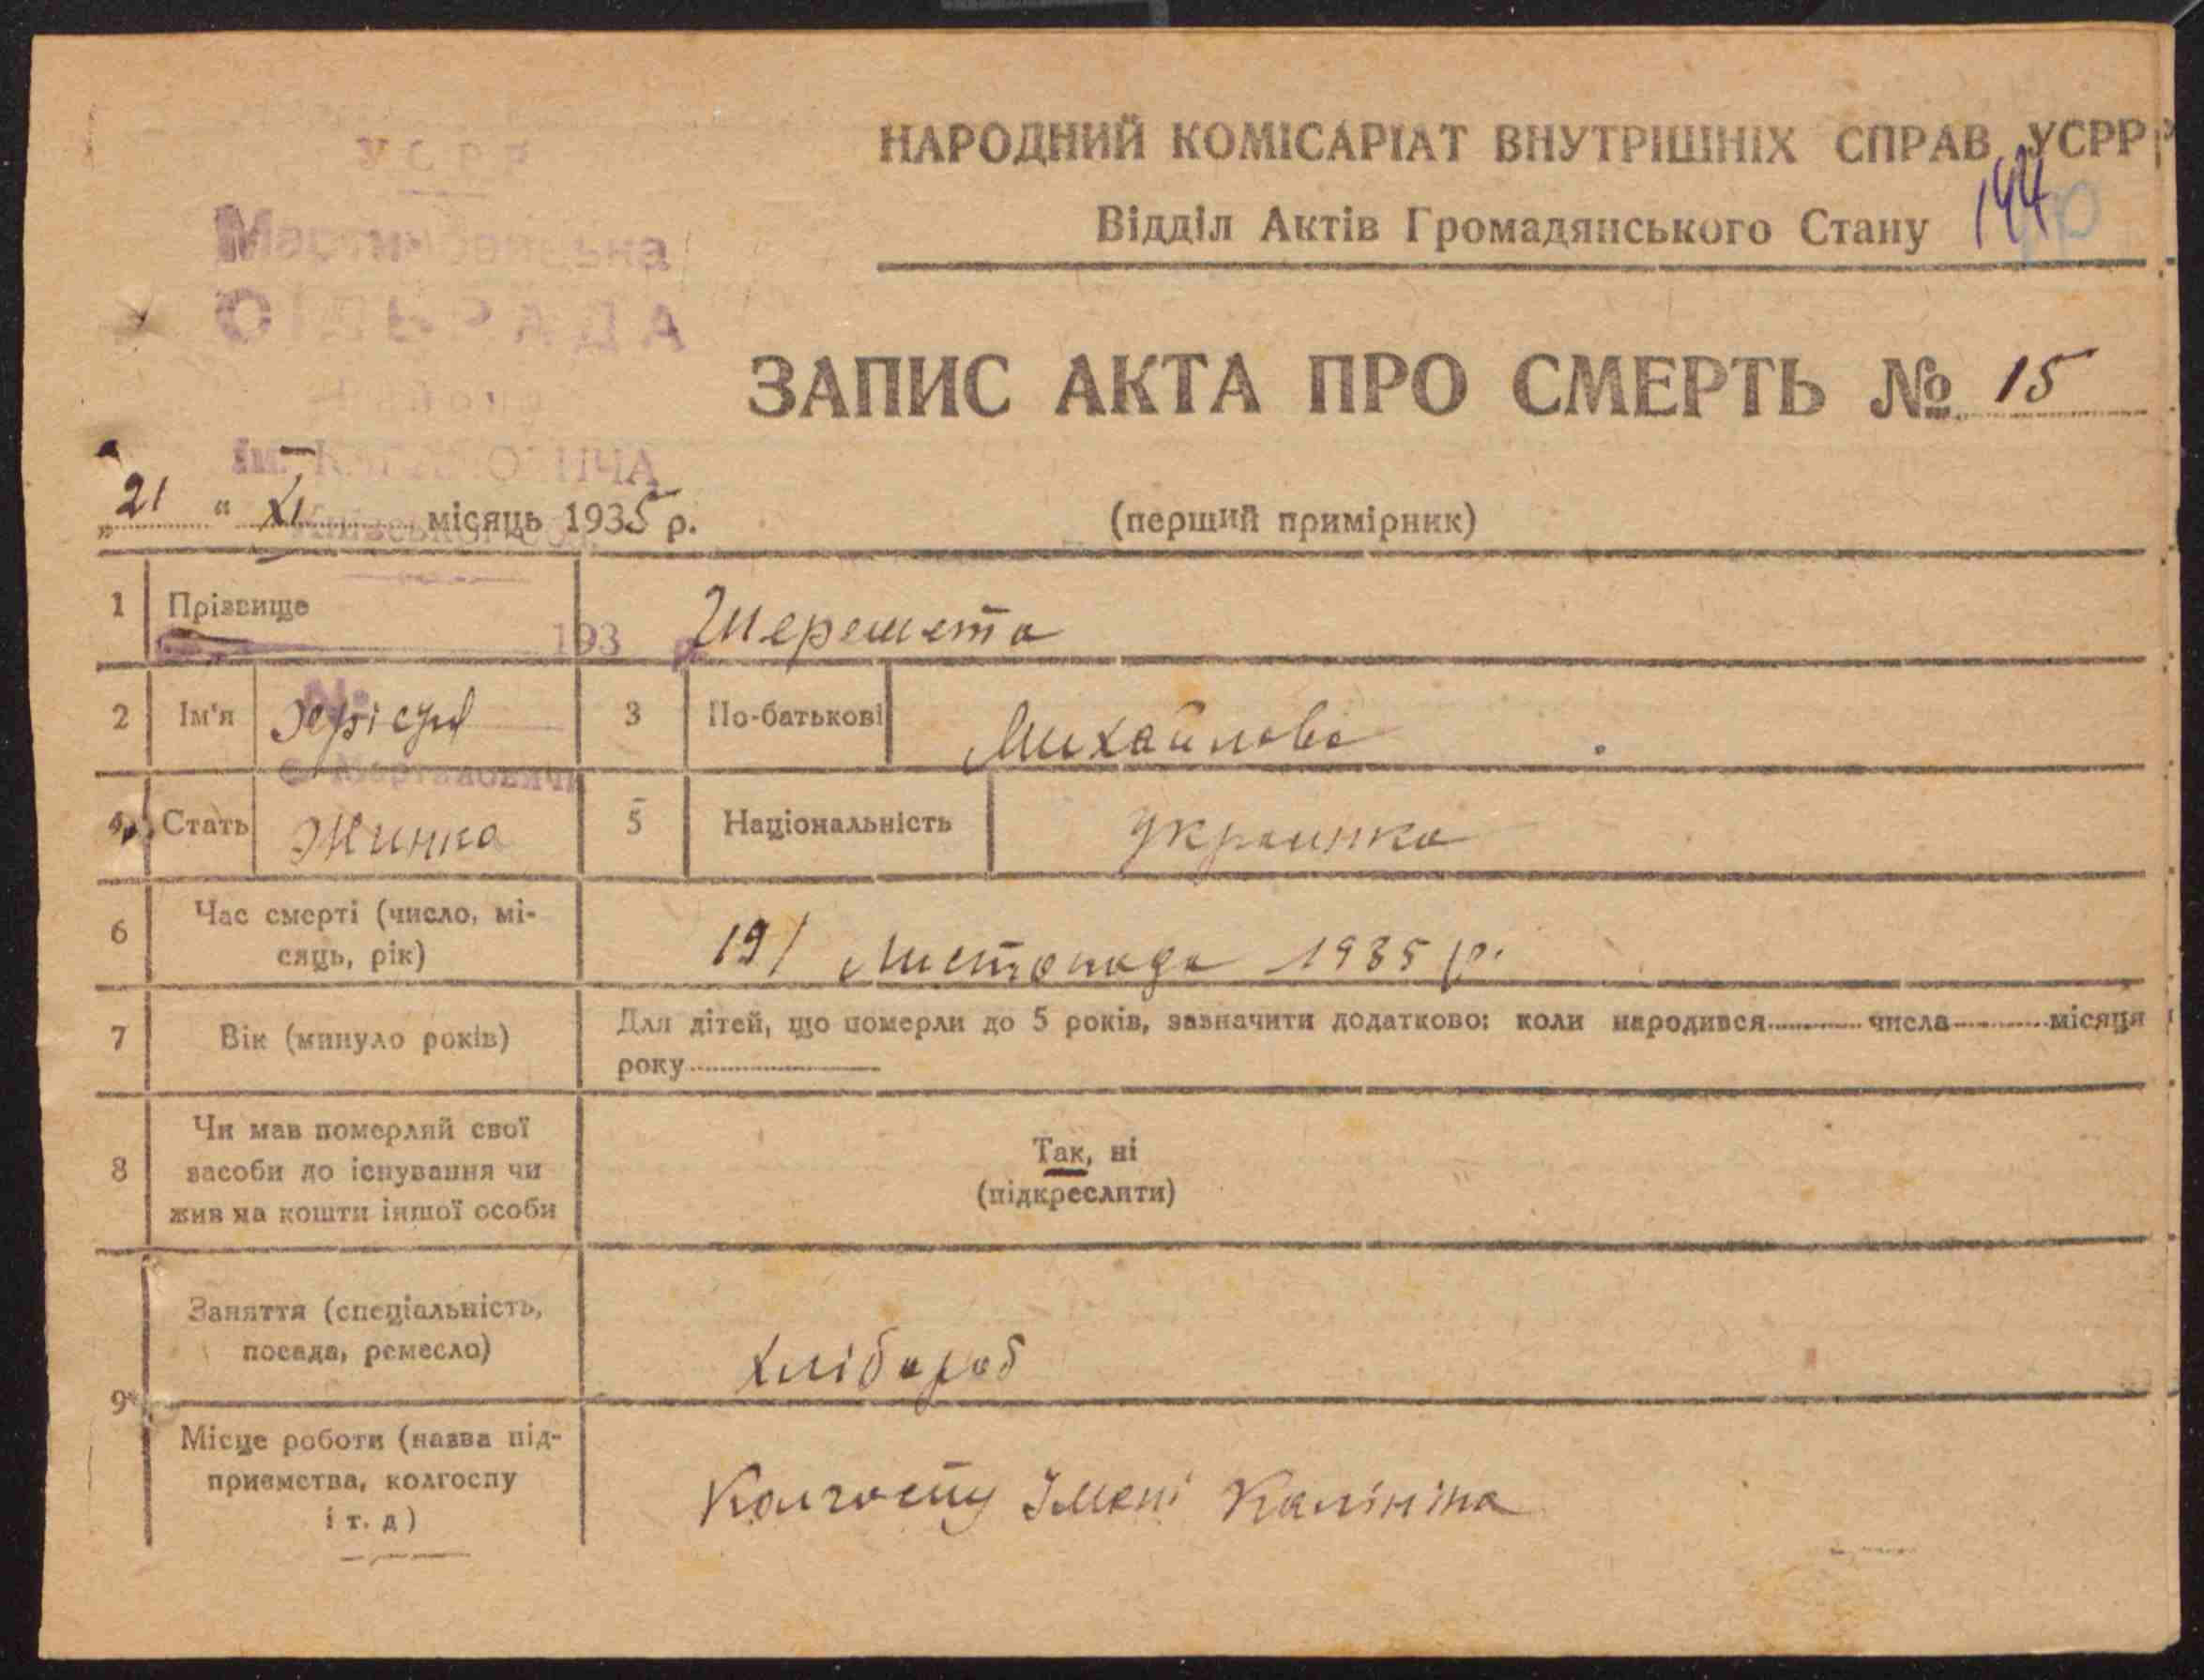 УСРР
НАРОДНИЙ КОМІСАРІАТ ВНУТРІШНІХ СПРАВ УСРР
Відділ Актів Громадянського Стану 144
ЗАПИС АКТА ПРО СМЕРТЬ № 15
„21“ XI місяць 1935 р.
(перший примірник)
1 Прізвище Шерешета
193
2 Ім'я 3 По-батькові Михайлова
4 Стать Жинка 5 Національність Украинка
6 Час смерті (число, мі-
сяць, рік) 19/ Листопада 1935 р.
7 Вік (минуло років) Для дітей, що померли до 5 років, зазначити додатково: коли народився числа місяця
року
8 Чи мав померлий свої
засоби до існування чи
жив на кошти іншої особи
Так, ні
(підкреслити)
9 Заняття (спеціальність,
посада, ремесло) хлібороб
Місце роботи (назва під-
приємства, колгоспу
і т. д) Колгоспу Імені Калініна